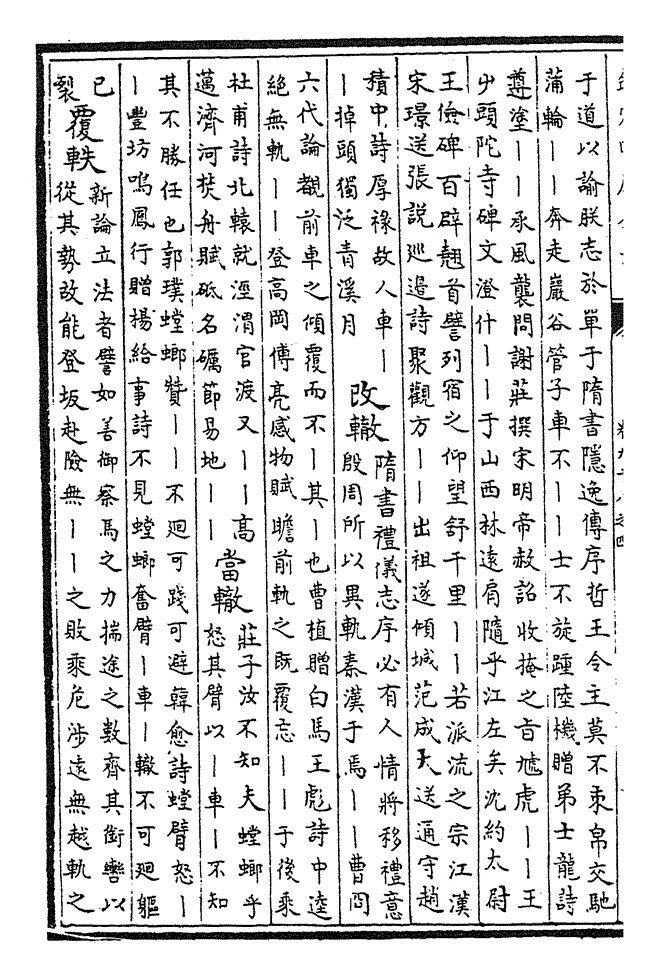 于道以諭朕志於單于隋書隱逸傳序哲王令主莫不束帛交馳
蒲輪||奔走巖谷管子車不||士不旋踵陸機贈弟士龍詩
遵塗||承風襲問謝莊撰宋明帝赦詔收掩之旨虓虎||王
屮頭陀寺碑文澄什||于山西林遠肩隨乎江左矣沈約太尉
王儉碑百辟翹首譬列宿之仰望舒千里||若派流之宗江漢
宋璟送張説巡邉詩聚觀方||出祖遂傾城范成大送通守趙
積中詩厚祿故人車|
|掉頭獨泛青溪月
改轍
隋書禮儀志序必有人情將移禮意
殷周所以異軌秦漢于焉||曹冏
六代論觀前車之傾覆而不|其|也曹植贈白馬王彪詩中逵
絶無軌||登高岡傅亮感物賦瞻前軌之既覆忘||于後乘
杜甫詩北轅就涇渭官渡又||高
邁濟河焚舟賦砥名礪節易地||
當轍
莊子汝不知夫螳螂乎
怒其臂以|車|不知
其不勝任也郭璞螳螂贊||不廻可踐可避韓愈詩螳臂怒|
|豐坊鳴鳳行贈揚給事詩不見螳螂奮臂|車|轍不可廻軀
已
裂
覆軼
新論立法者譬如善御察馬之力揣途之數齊其銜轡以
從其勢故能登坂赴險無||之敗乘危涉遠無越軌之